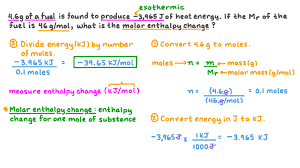 exothermic
4.6g of a fuel is found to produce −3,965 J of heat energy. If the Mr of the
fuel is 46 g/mol, what is the molar enthalpy change?
③ Divide energy (kJ) by number
of moles.
−3.965 KJ
0.1 moles
= −39.65 KJ/mol
measure enthalpy change (kJ/mol)
Molar enthalpy change: enthalpy
change for one mole of substance
① Convert 4.6g to moles.
moles → n = m ← mass (g)
Mr ← molar mass (g/mol)
n = (4.6g) = 0.1 moles
(46g/mol)
② Convert energy in J to KJ.
−3,965 J x 1KJ = −3.965 KJ
1000J